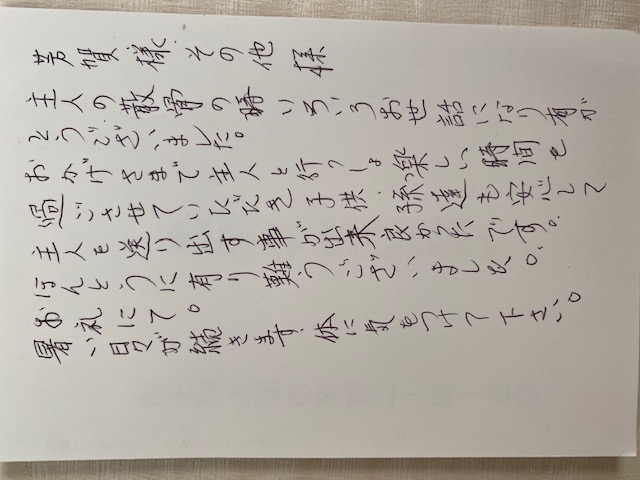 芳賀様 その他 様
主人の散骨の時いろいろお世話になり有が
とうございました。
おかげさまで主人と行っしょ楽しい時間を
過ごさせていただき子供、孫達も安心して
主人を送り出す事が出来良かったです。
ほんとうに有り難うございました。
お礼にて。
暑い日々が続きます。体に気をつけて下さい。